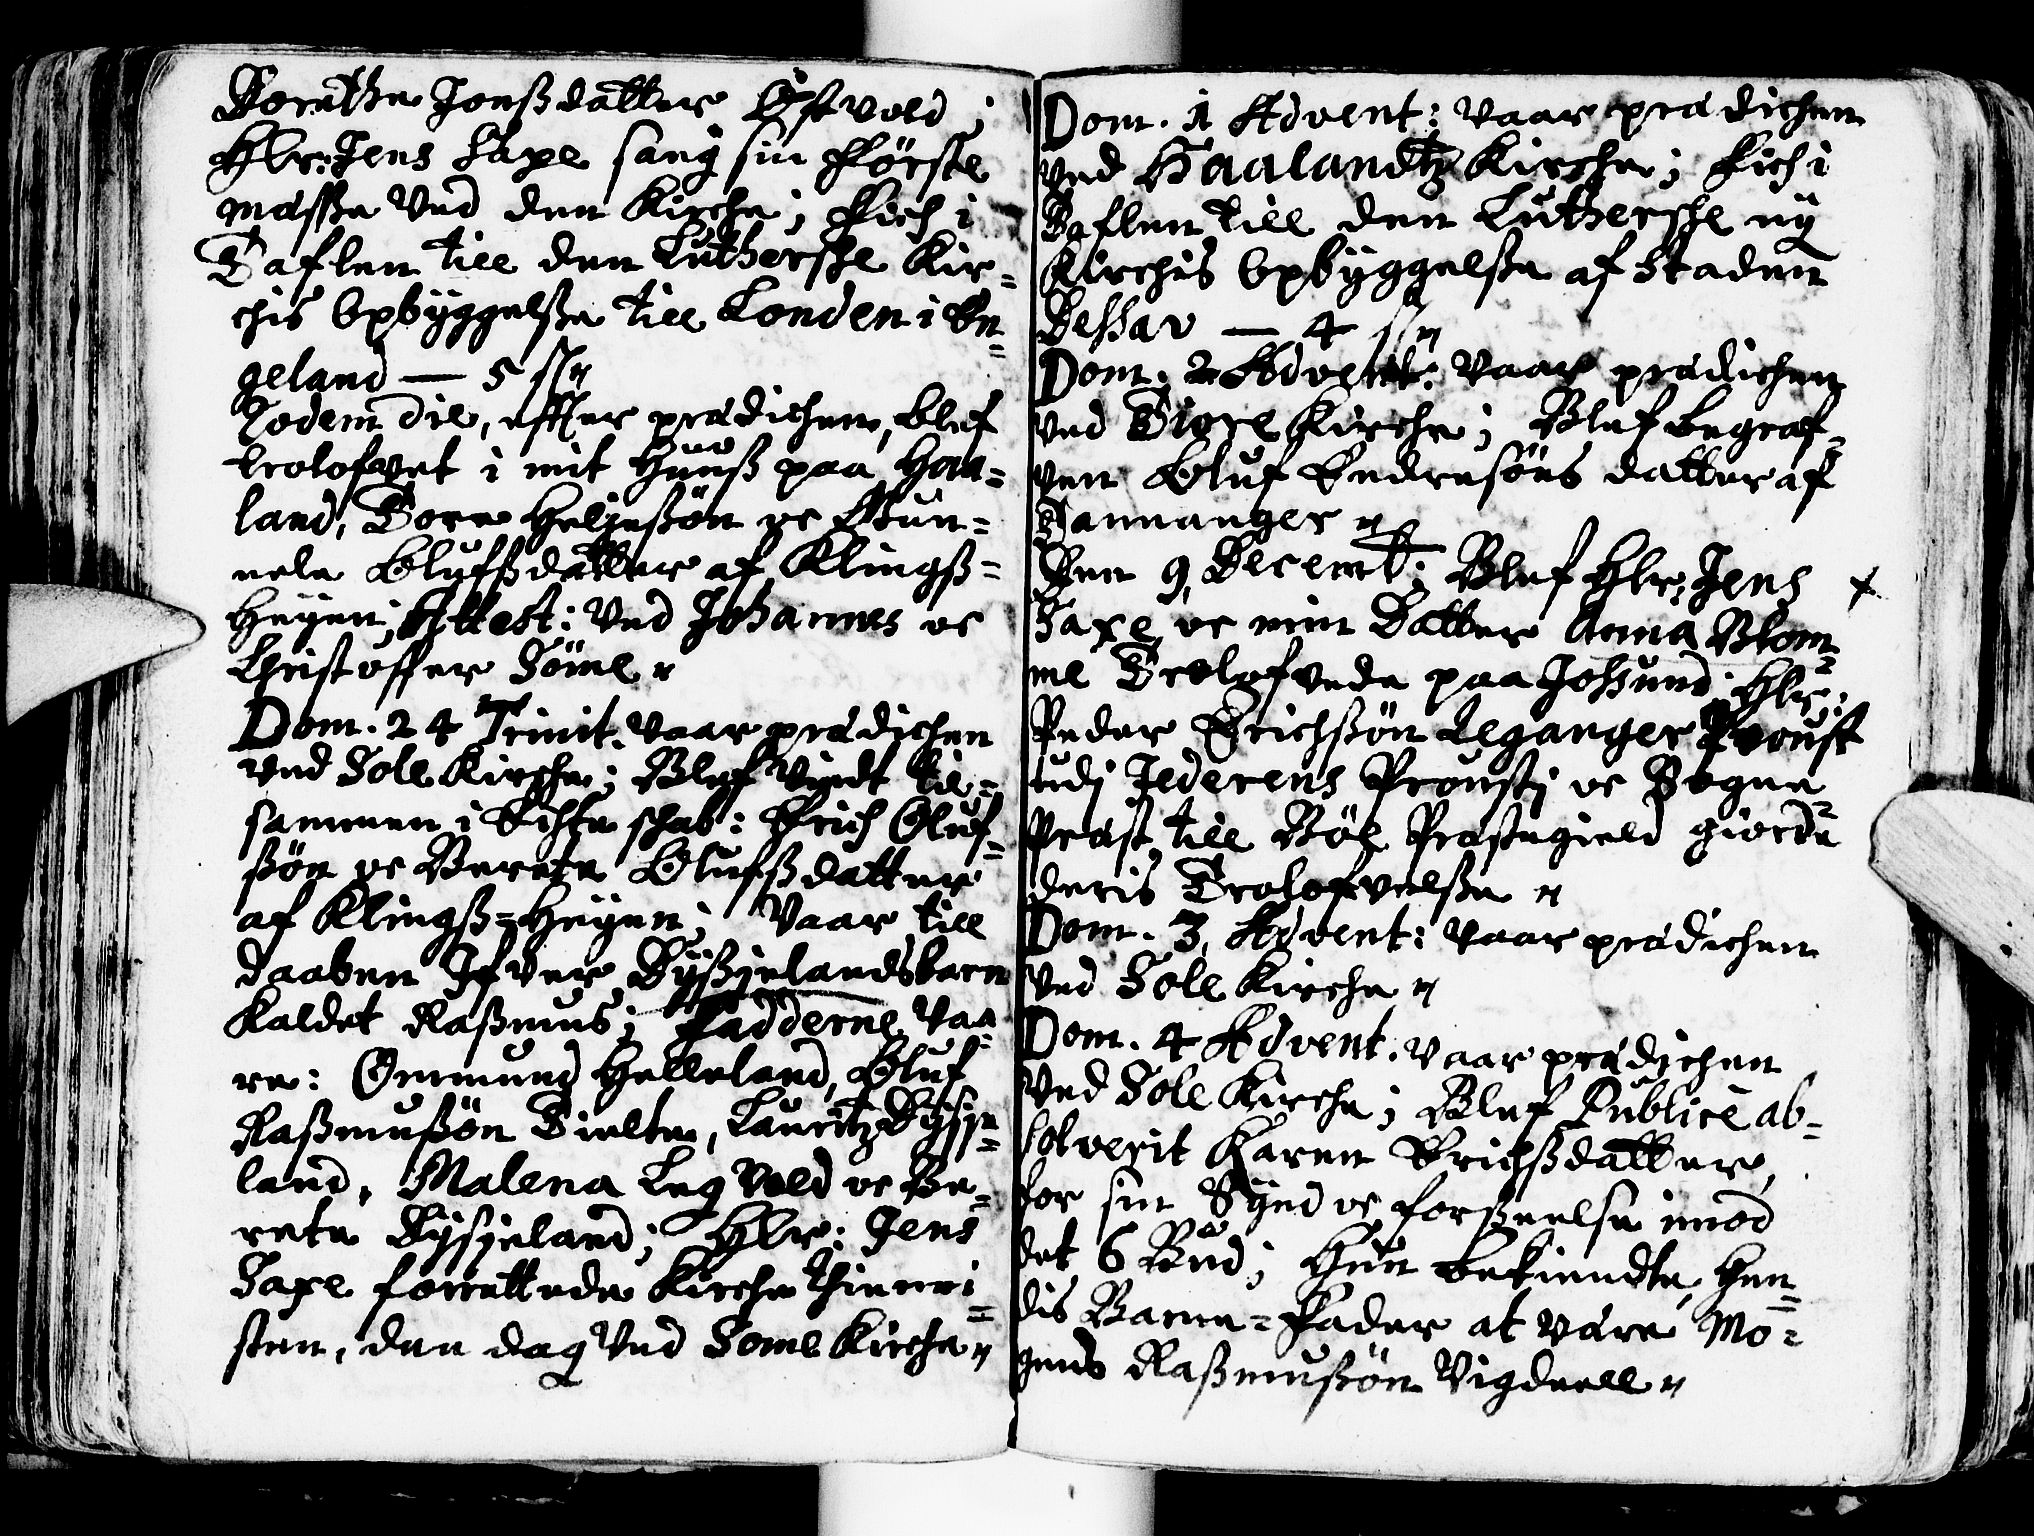 Dorethe Jonßdatter Østvold;
Hlr: Jens Saxe sang sin Første
Messe Ved den Kirche; Fich i
Taflen till den Lutherske Kir=
chis Opbyggelße till Londen i En=
geland — 5 sk//
Eodem die, effter prædichen, blef
trolofvet i mit Huuß paa Haa=
land, Tore Helgeßøn oc Gun=
nele Olufßdatter af Klingß=
Heyen; Attest: Ved Johannes oc
Christoffer Söme //
Dom. 24 Trinit. Vaar prædichen
Ved Sole Kirche; Blef Viedt til=
sammen i Echteskab: Erich Oluf=
ßøn oc Berete Olufßdatter
af Klingß=Heyen; Vaar till
daaben Ifver Dyßielands barn
Kaldet Raßmus; Fadderne Vaa=
re: Ommund Helleland, Oluf
Raßmußøn Tielte, Lauritz Dysie=
land, Malena Leqvold oc Be=
rete Dysieland; Hlr: Jens
Saxe forrettede Kirche Thienni=
sten, den dag Ved Some Kirche //
Dom. 1 Advent: Vaar prædichen
Ved Haalandtz Kirche; Fich i
Taflen till den Lutherske ny
Kirchis Opbyggelße af Staden
Dessav — 4 sk//
Dom. 2 Advent: Vaar prædichen
Ved Tiore Kirche; Blef begraf=
ven Oluf Endresøns datter af
Tannanger //
Den 9 Decemb: Blef Hlr: Jens +
Saxe oc min Datter Anna Blom=
me Trolofvede paa Joßund; Hlr:
Peder Erichßøn Leganger Proust
udj Jederens Proustj oc Sogne=
Præst till Bøe Præstegield giorde
deris Trolofvelße //
Dom. 3 Advent: Vaar prædichen
Ved Sole Kirche //
Dom. 4 Advent. Vaar prædichen
Ved Sole Kirche; Blef Publice ab=
solverit Karen Erichßdatter,
for sin Synd oc forßeelse imod
det 6 Bud; Hun bekiendte Hen=
dis Barne=Fader at være Mo=
gens Raßmußøn Vigdeell //